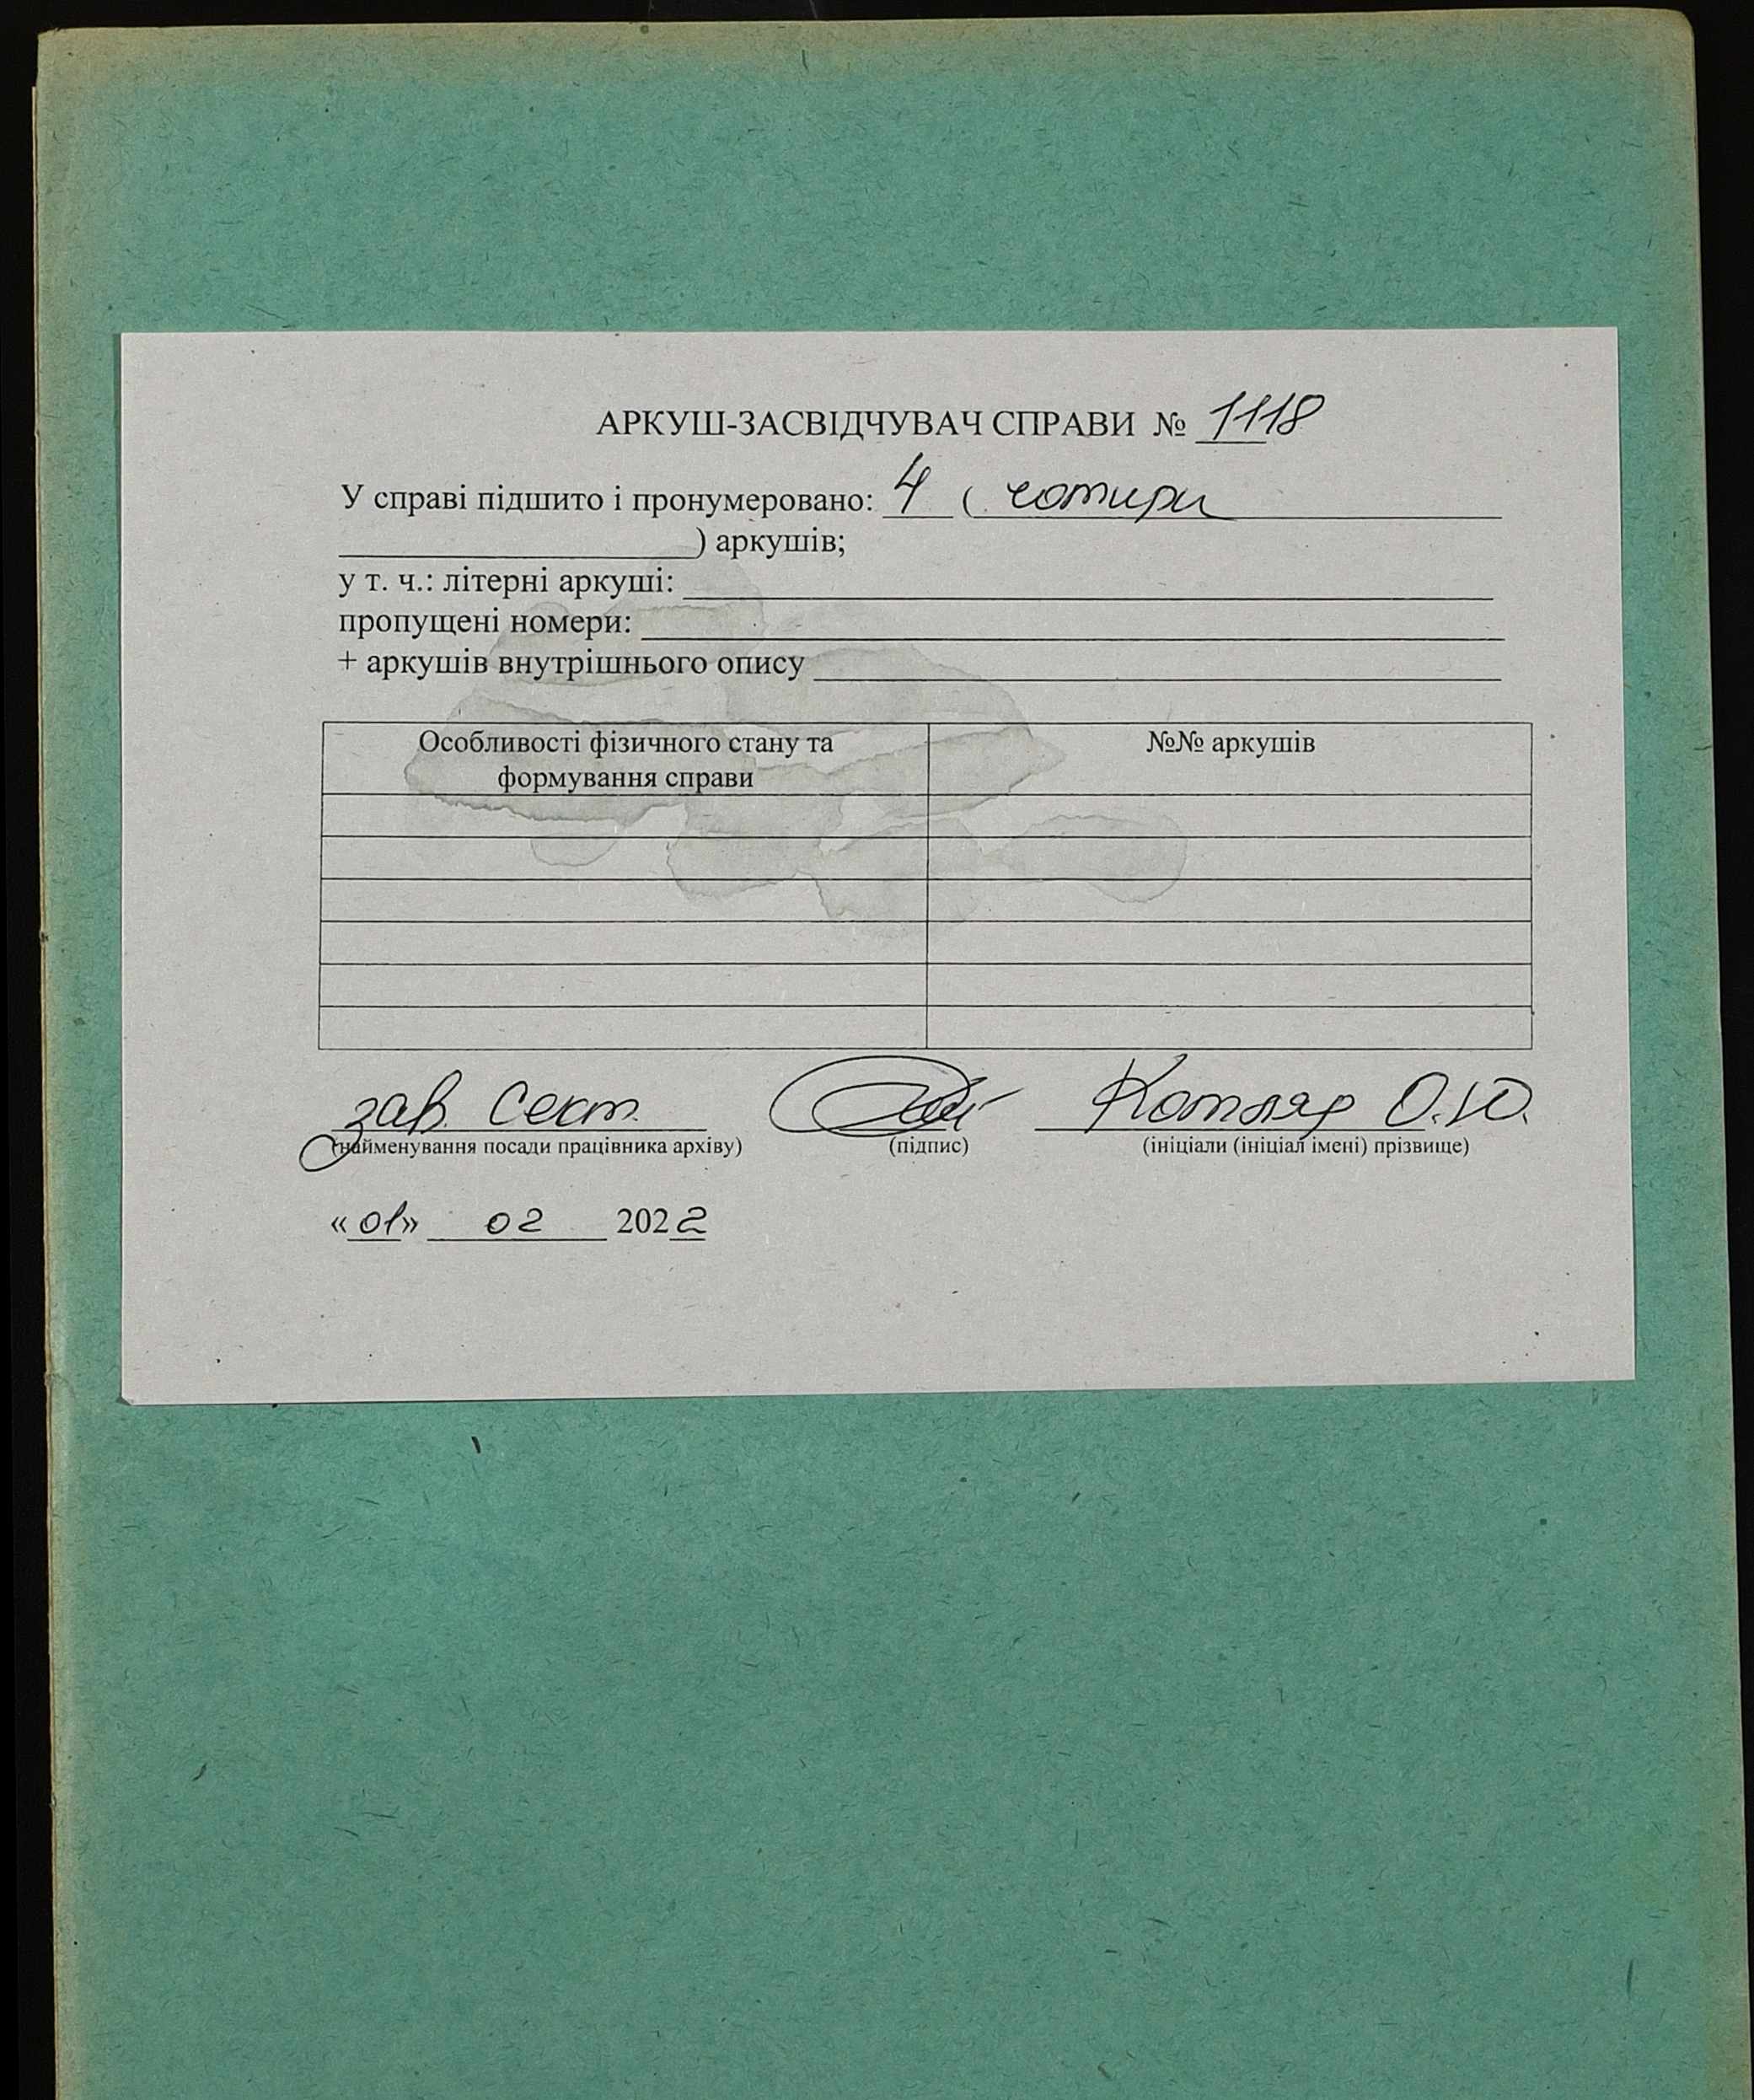 АРКУШ-ЗАСВІДЧУВАЧ СПРАВИ № 1118
У справі підшито і пронумеровано: 4 ( чотири
) аркушів;
у т. ч.: літерні аркуші:
пропущені номери:
+ аркушів внутрішнього опису
Особливості фізичного стану та формування справи №№ аркушів
зав. сект. Котляр О.Ю.
(найменування посади працівника архіву) (підпис) (ініціали (ініціал імені) прізвище)
«01» 02 2022